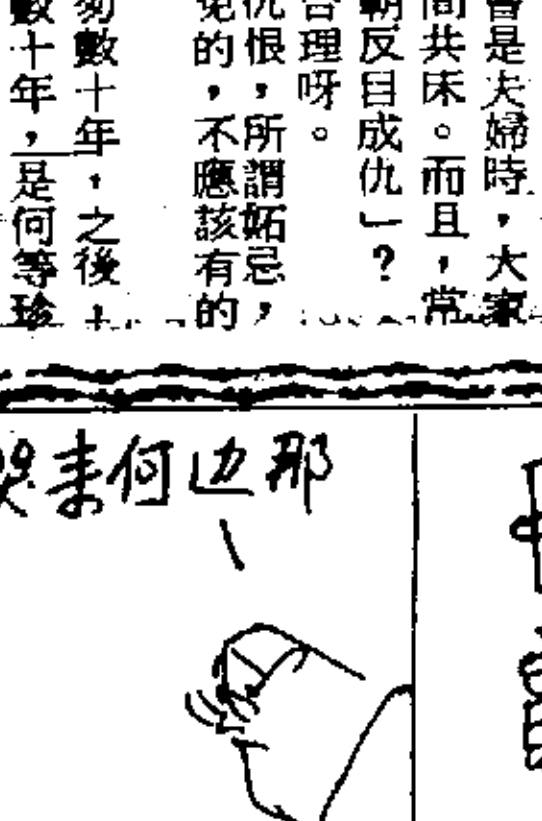 會是夫婦時，大家
間共床。而且，常
朝反目成仇」？
合理呀。
仇恨，所謂妬忌，
免的，不應該有的
匆數十年，之後，
數十年，是何等珍
那边何来哭